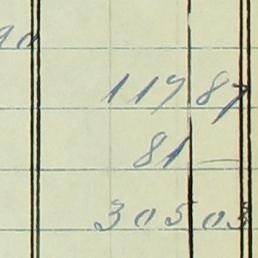 117 87
81 –
305 03